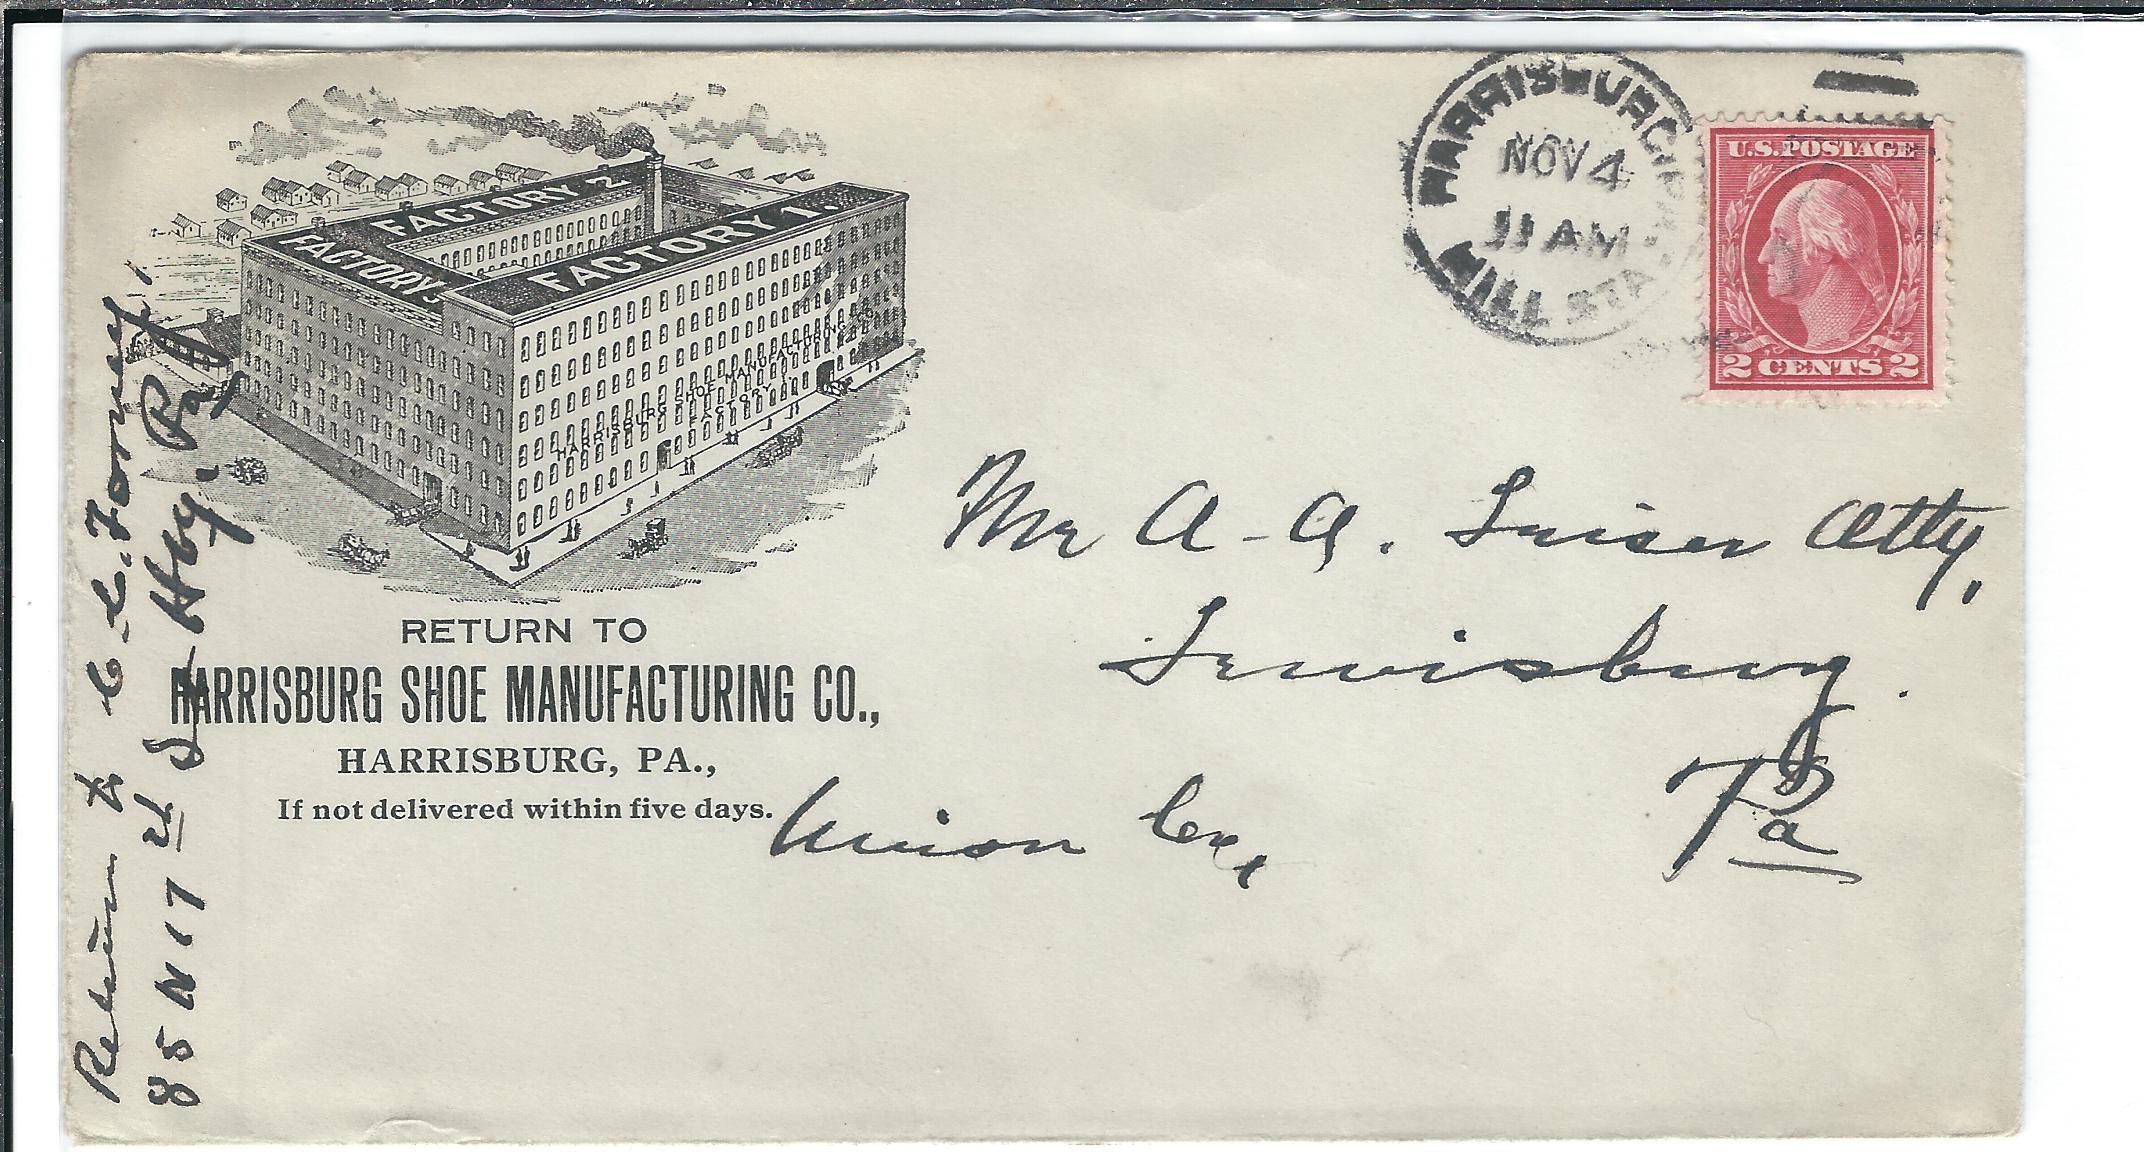 FACTORY 2
FACTORY 3
FACTORY 1.
HARRISBURG SHOE MANUFACTURING CO.
FACTORY 1
RETURN TO
HARRISBURG SHOE MANUFACTURING CO.,
HARRISBURG, PA.,
If not delivered within five days.
HARRISBURG, PA.
NOV 4
11 AM
HILL STA.
U.S. POSTAGE
2 CENTS 2
Mr A. A. Leiser Atty,
Lewisburg.
Union Co.,
Pa
Return to C. E. Forney,
85 N 17th St Hbg, Pa,